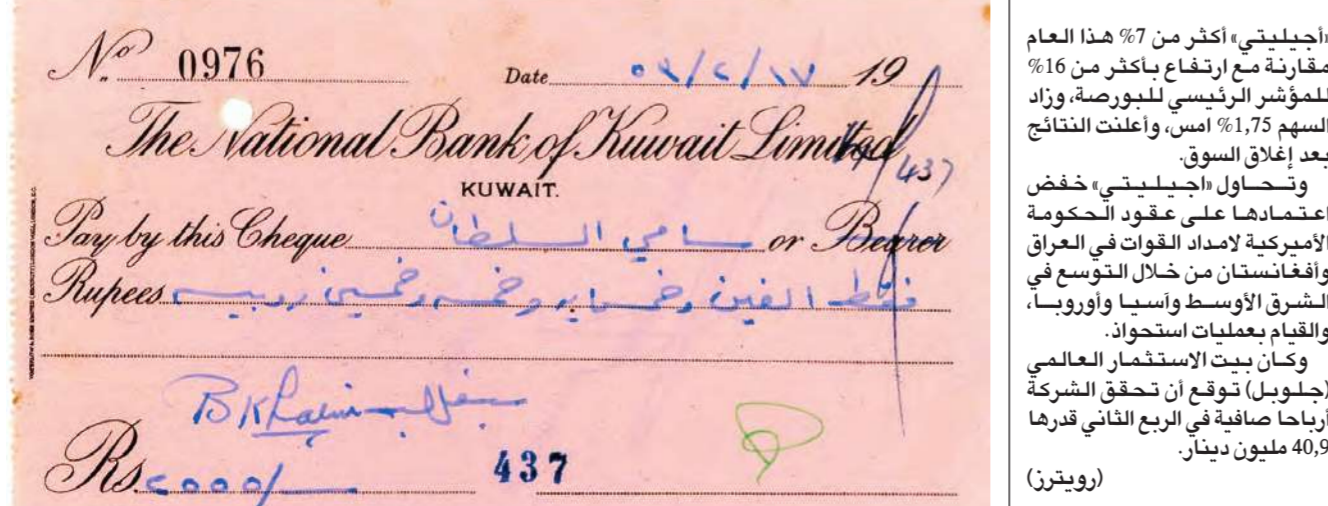 No 0976
Date ٥٩/٢/١٧ 19
The National Bank of Kuwait Limited
437
KUWAIT.
Pay by this Cheque سامي السلطان or Bearer
Rupees فقط الفين وخمسمايه وخمسه وخمسين روبيه
Rs ٢٥٥٥/-
437
«أجيليتي» أكثر من 7% هذا العام
مقارنة مع ارتفاع بأكثر من 16%
للمؤشر الرئيسي للبورصة، وزاد
السهم 1,75% امس، وأعلنت النتائج
بعد إغلاق السوق.
وتحاول «اجيليتي» خفض
اعتمادها على عقود الحكومة
الأميركية لامداد القوات في العراق
وأفغانستان من خلال التوسع في
الشرق الأوسط وآسيا وأوروبا،
والقيام بعمليات استحواذ.
وكان بيت الاستثمار العالمي
(جلوبل) توقع أن تحقق الشركة
أرباحا صافية في الربع الثاني قدرها
40,9 مليون دينار.
(رويترز)